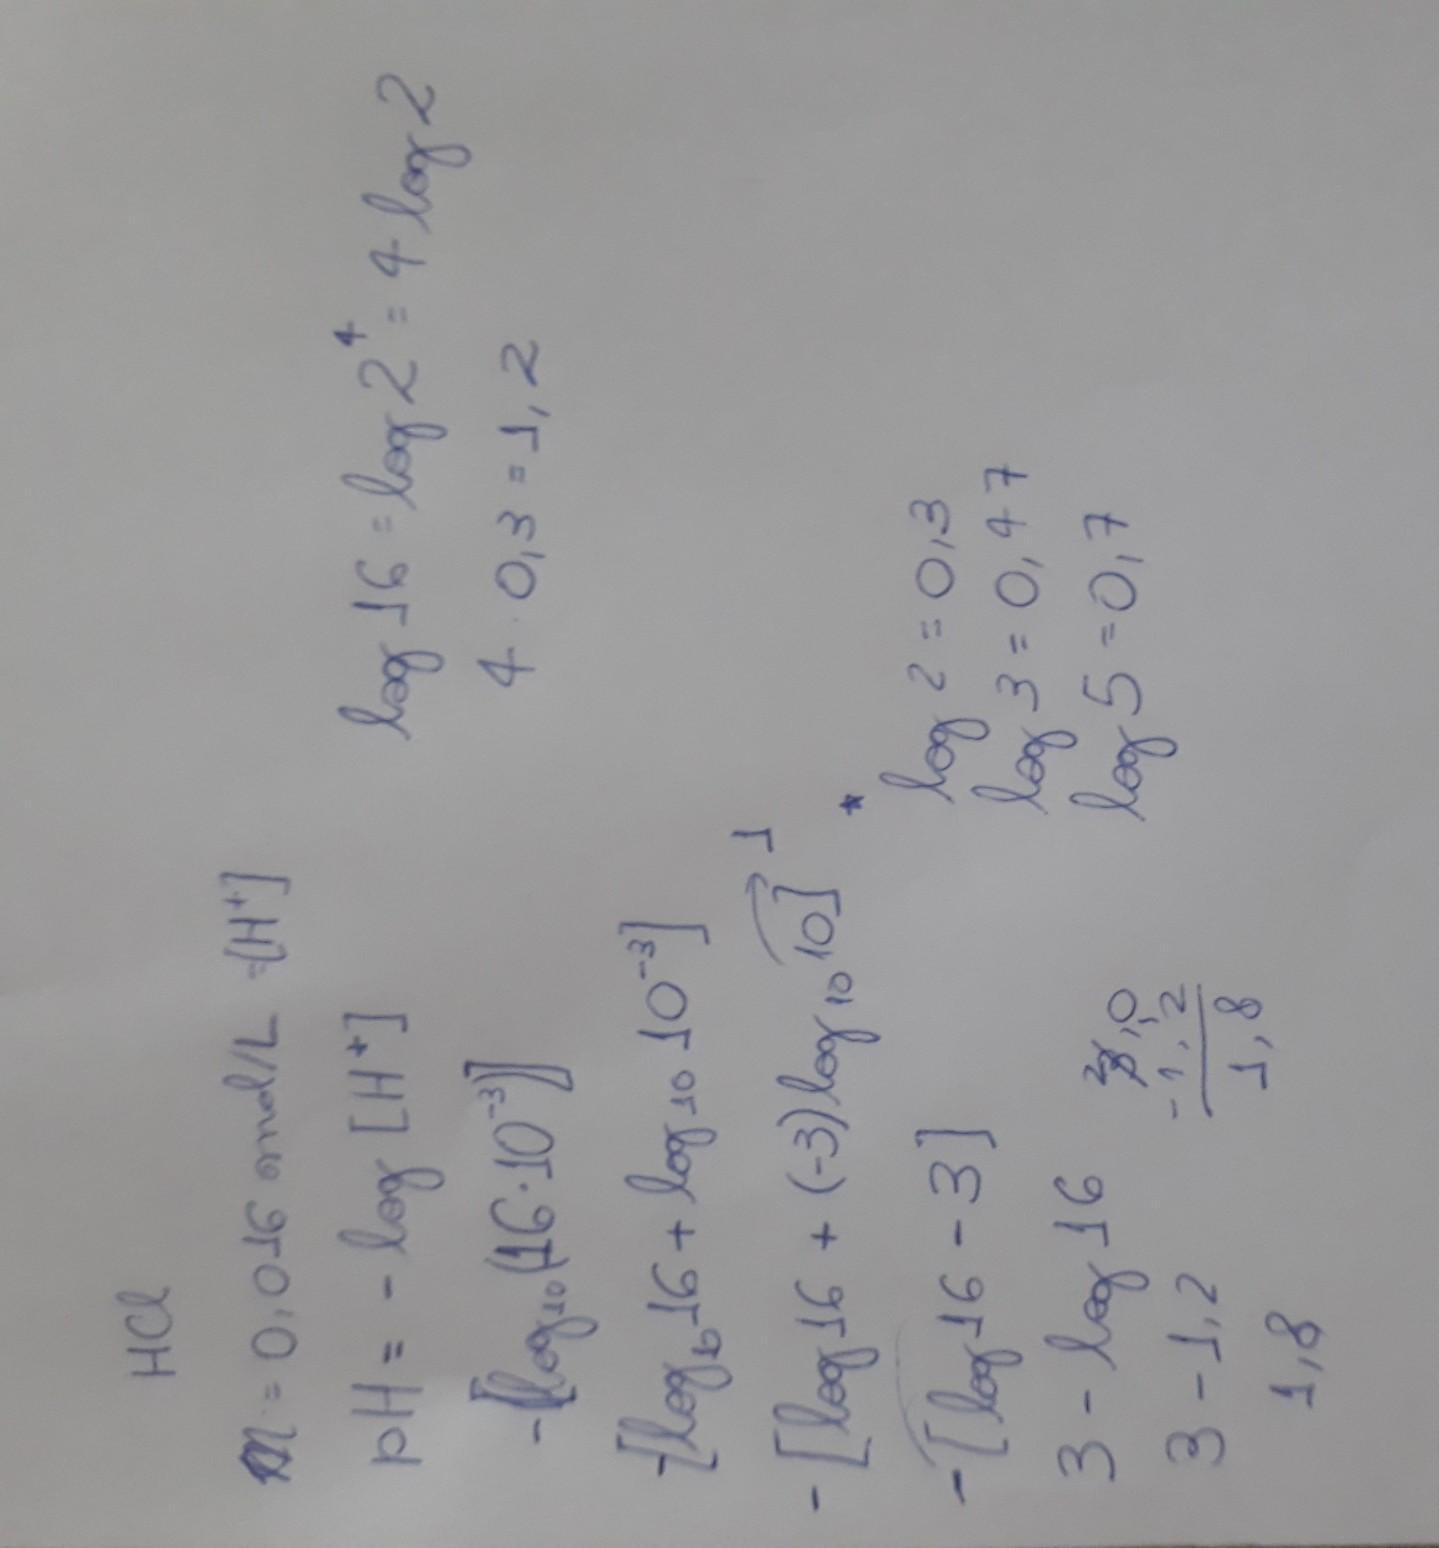 HCl
m = 0,016 mol/L = [H⁺]
pH = - log [H⁺]
-[log₁₀(16·10⁻³)]
-[log₁₀ 16 + log₁₀ 10⁻³]
-[log 16 + (-3) log₁₀ 10] 1
-[log 16 - 3]
3 - log 16
3 - 1,2
1,8
3,0
-1,2
1,8
log 16 = log 2⁴ = 4 log 2
4 · 0,3 = 1,2
* log 2 = 0,3
log 3 = 0,47
log 5 = 0,7